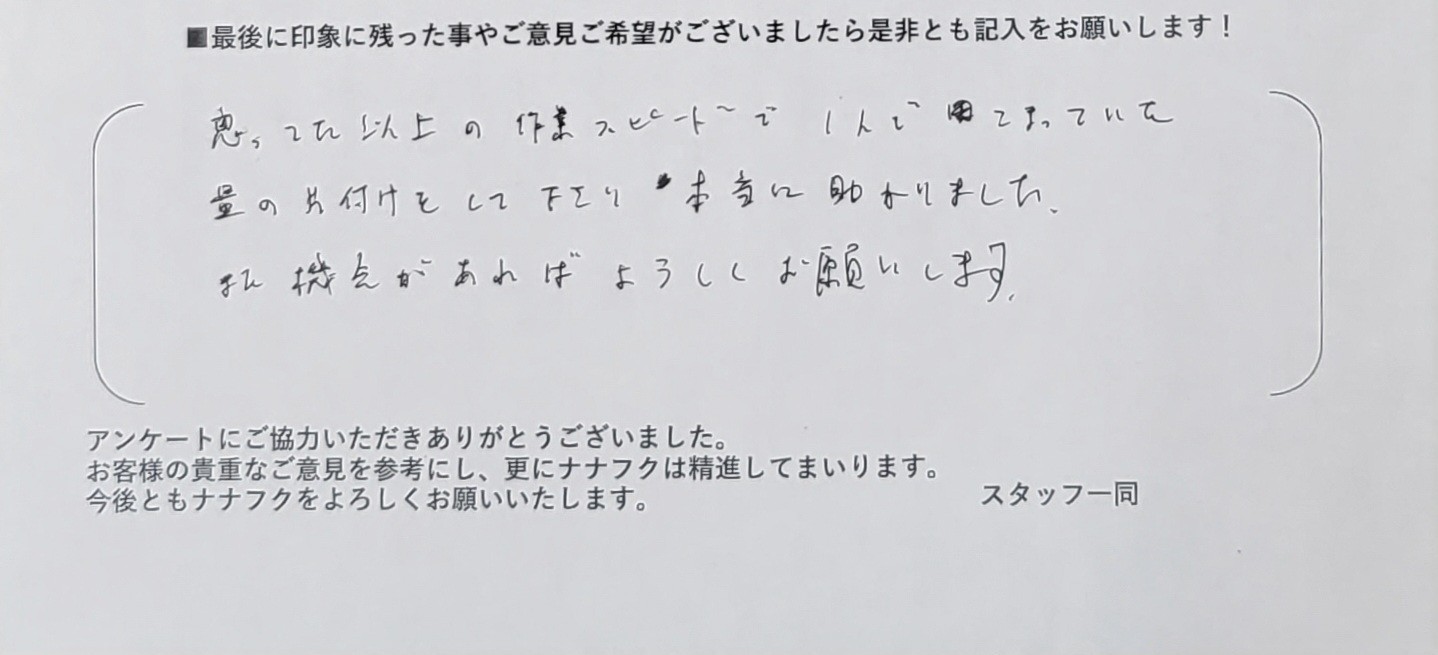 ■最後に印象に残った事やご意見ご希望がございましたら是非とも記入をお願いします！
思ってた以上の作業スピードで1人で困てまっていた
量の片付けをして下さり本当に助かりました。
また機点があればよろしくお願いします。
アンケートにご協力いただきありがとうございました。
お客様の貴重なご意見を参考にし、更にナナフクは精進してまいります。
今後ともナナフクをよろしくお願いいたします。
スタッフ一同